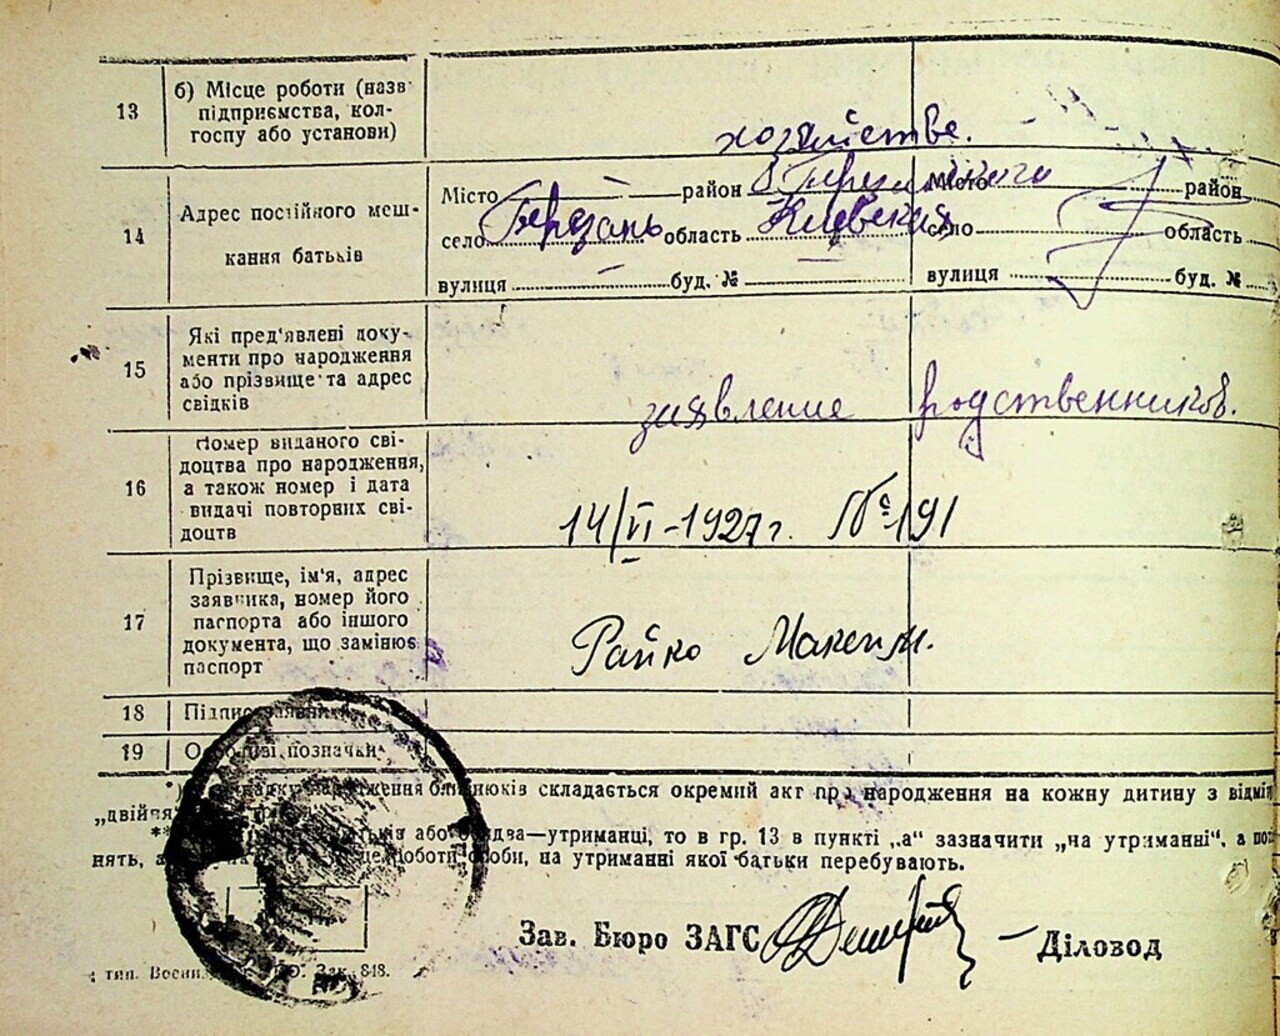 13 б) Місце роботи (назв
підприємства, кол-
госпу або установи)
хозяйстве.
14 Адрес постійного меш-
кання батьків
Місто район Місто район
село Березань область Киевская село область
вулиця буд. № вулиця буд. №
15 Які пред'явлені доку-
менти про народження
або прізвище та адрес
свідків
заявление родственников.
16 Номер виданого сві-
доцтва про народження,
а також номер і дата
видачі повторних сві-
доцтв
14/VI-1927г. № 191
17 Прізвище, ім'я, адрес
заявника, номер його
паспорта або іншого
документа, що замінює
паспорт
Райко Максим.
18 Підпис заявника
19 Особливі позначки
народження близнюків складається окремий акт про народження на кожну дитину з відмі
„двійня
або обидва—утриманці, то в гр. 13 в пункті „а“ зазначити „на утриманні“, а
нять, роботи особи, на утриманні якої батьки перебувають.
Зав. Бюро ЗАГС — Діловод
тип. Зак. 848.